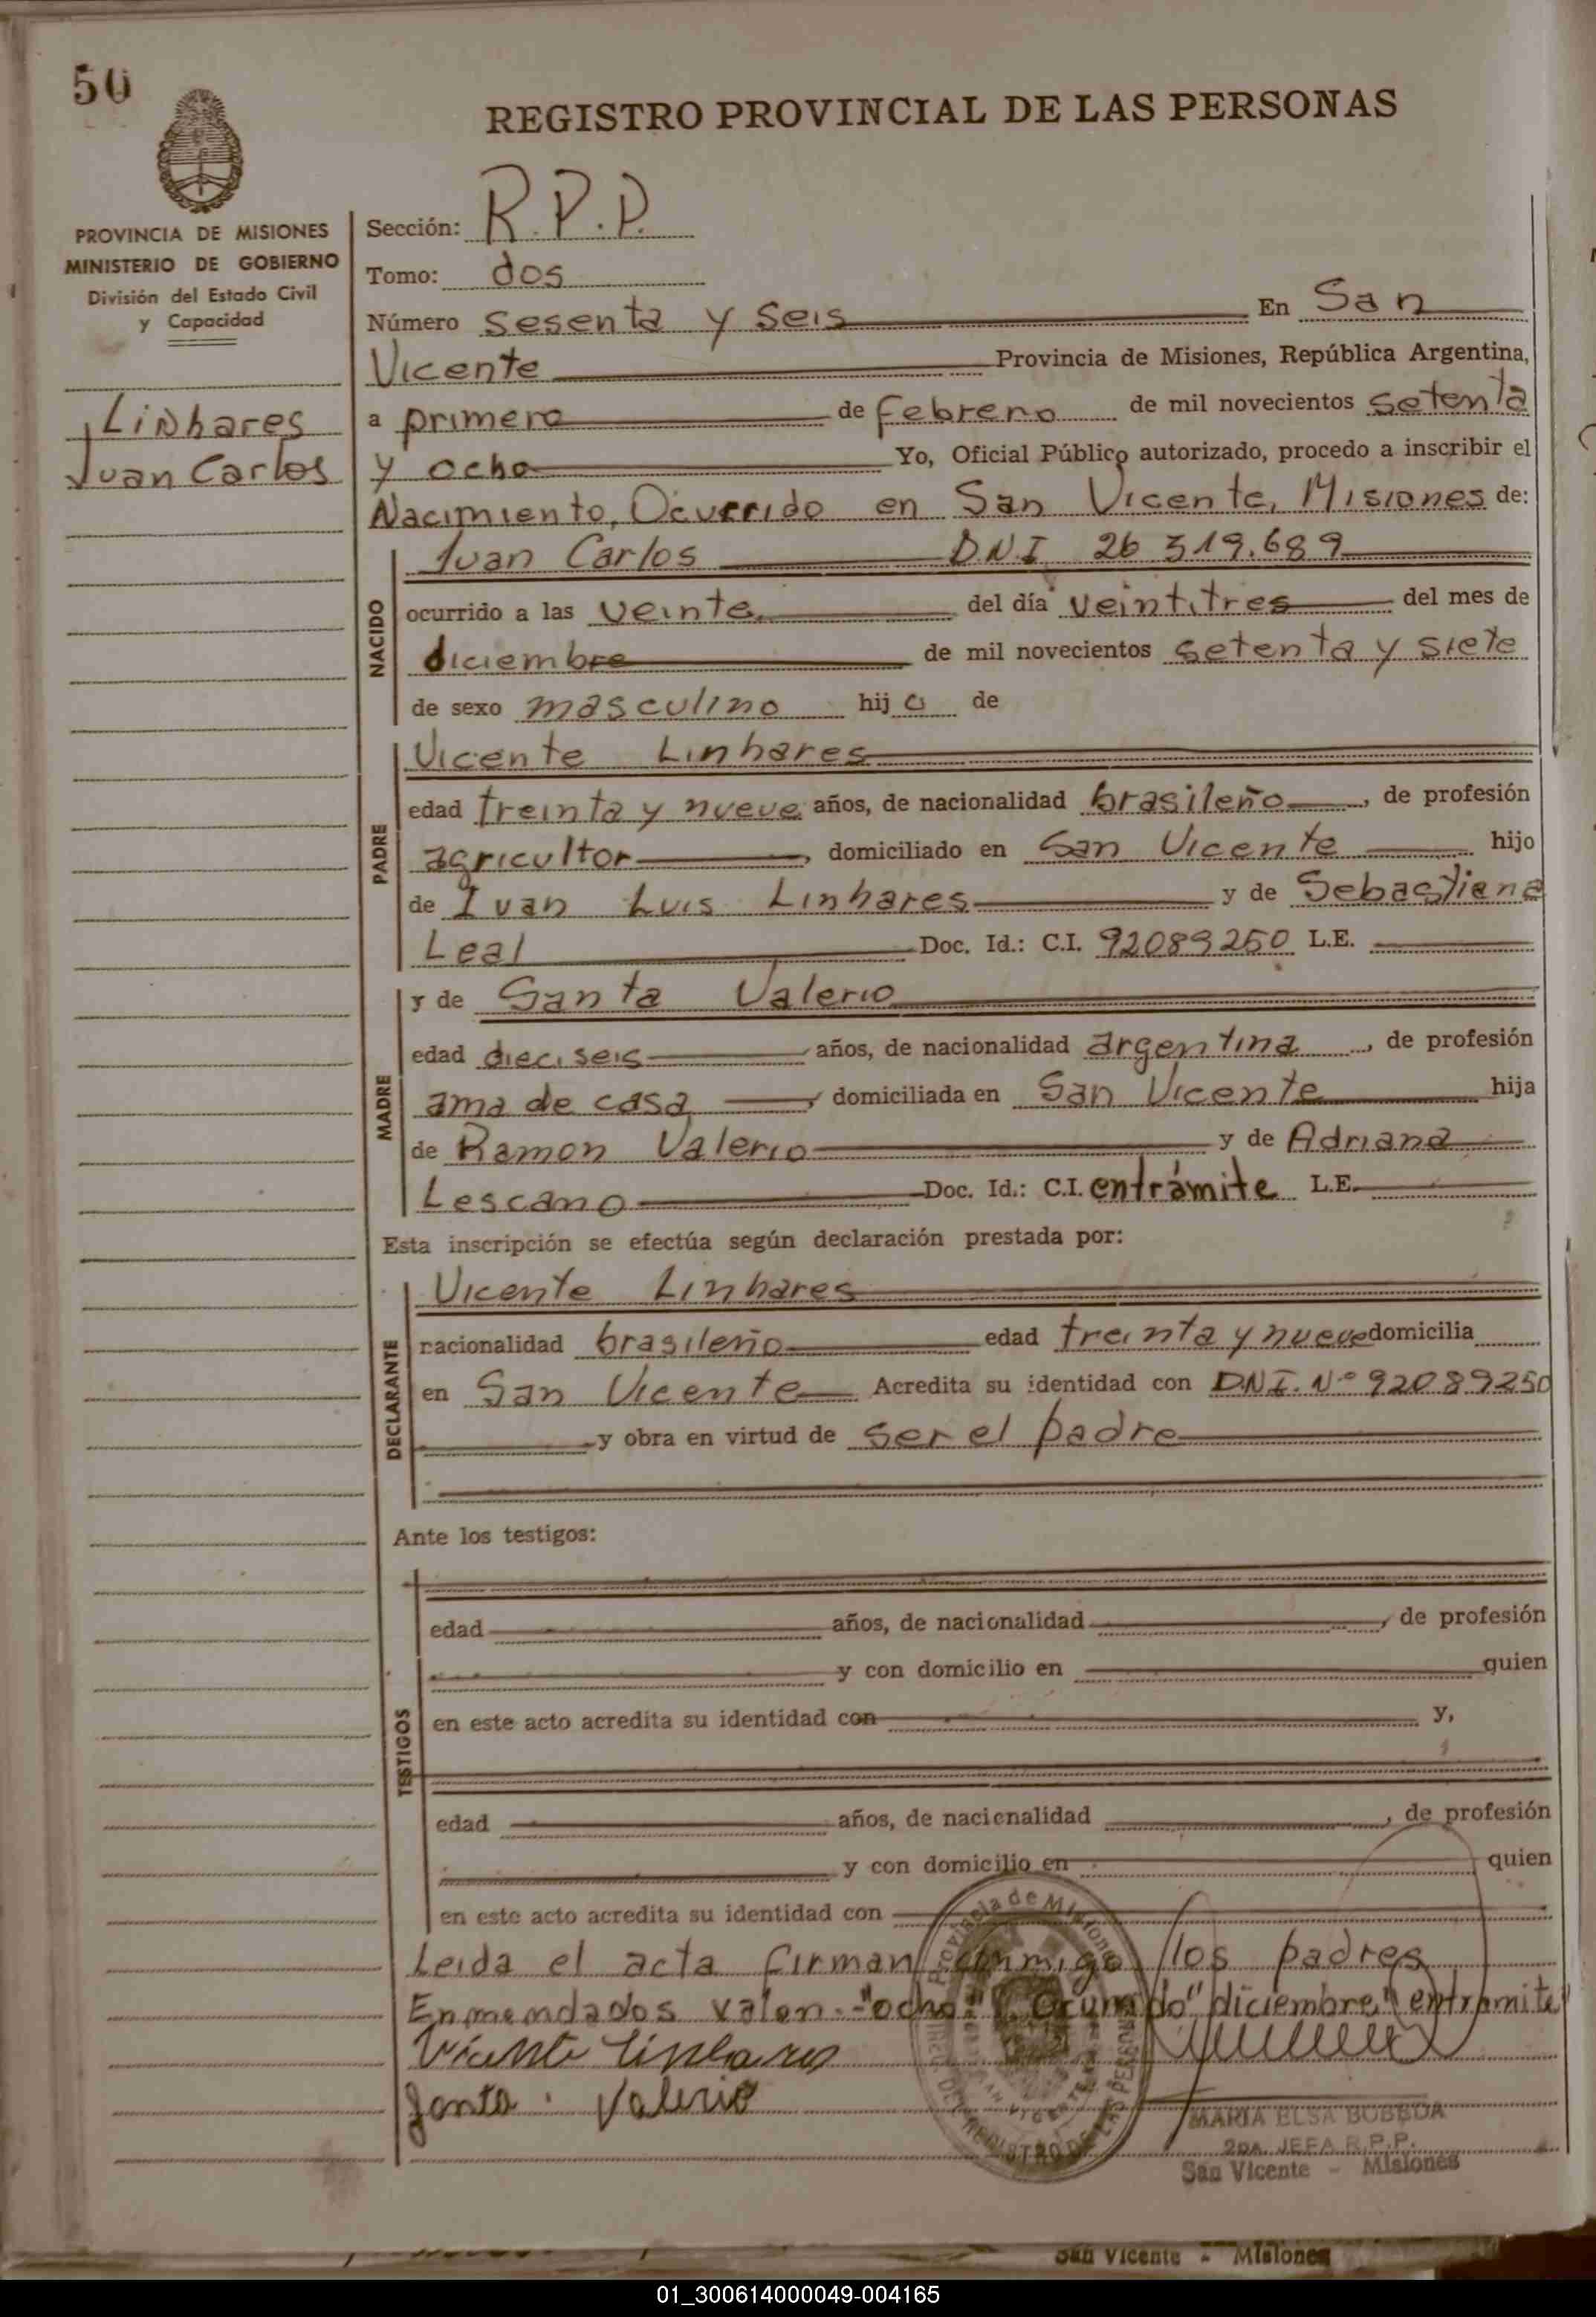 50
REGISTRO PROVINCIAL DE LAS PERSONAS
PROVINCIA DE MISIONES
MINISTERIO DE GOBIERNO
División del Estado Civil
y Capacidad
Linhares
Juan Carlos
Sección: R.P.P.
Tomo: dos
Número sesenta y seis En San
Vicente Provincia de Misiones, República Argentina,
a primero de febrero de mil novecientos setenta
y ocho Yo, Oficial Público autorizado, procedo a inscribir el
Nacimiento, Ocurrido en San Vicente, Misiones de:
NACIDO
Juan Carlos D.N.I 26 319.689
ocurrido a las veinte del día veintitres del mes de
diciembre de mil novecientos setenta y siete
de sexo masculino hijo de
PADRE
Vicente Linhares
edad treinta y nueve años, de nacionalidad brasileño, de profesión
agricultor, domiciliado en San Vicente hijo
de Juan Luis Linhares y de Sebastiana
Leal Doc. Id.: C.I. 92089250 L.E.
MADRE
y de Santa Valerio
edad dieciseis años, de nacionalidad argentina, de profesión
ama de casa, domiciliada en San Vicente hija
de Ramon Valerio y de Adriana
Lescano Doc. Id.: C.I. entrámite L.E.
Esta inscripción se efectúa según declaración prestada por:
DECLARANTE
Vicente Linhares
nacionalidad brasileño edad treinta y nueve domicilia
en San Vicente Acredita su identidad con D.N.I. Nº 92089250
y obra en virtud de ser el padre
Ante los testigos:
TESTIGOS
edad años, de nacionalidad, de profesión
y con domicilio en quien
en este acto acredita su identidad con y,
edad años, de nacionalidad, de profesión
y con domicilio en quien
en este acto acredita su identidad con
Leida el acta firman conmigo los padres
Enmendados valen.-"ocho" "Ocurrido" "diciembre" "entramite"
Vicente Linhares
Santa Valerio
Provincia de Misiones
MARIA ELSA BOBEDA
2DA. JEFA R.P.P.
San Vicente - Misiones
San Vicente - Misiones
01_300614000049-004165